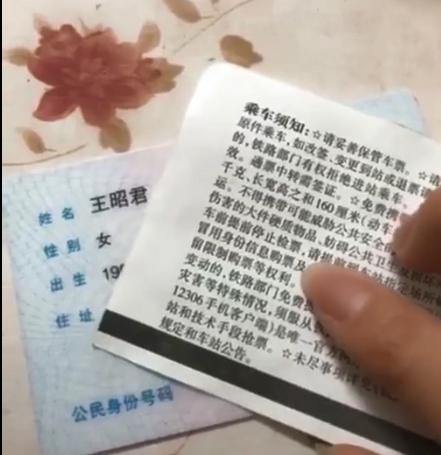 姓名 王昭君
性别 女
出生 199
住址
公民身份号码
乘车须知:☆请妥善保管车票。☆请
原件乘车,如改签、变更到站或退票请
的,铁路部门有权拒绝进站乘车。
效。通票中转需签证。☆免费携
千克,长宽高之和160厘米(动车
运。不得携带可能威胁公共安全的
伤害的大件硬质物品、妨碍公共卫生及损坏
车前提前停止检票,请提前到车站指定场所
冒用身份信息购票及
留限制购票等权利。
变动的,铁路部门免费
灾害等特殊情况,须服从
12306手机客户端)是唯一官方
站和技术手段抢票。☆未尽事项详见
规定和车站公告。